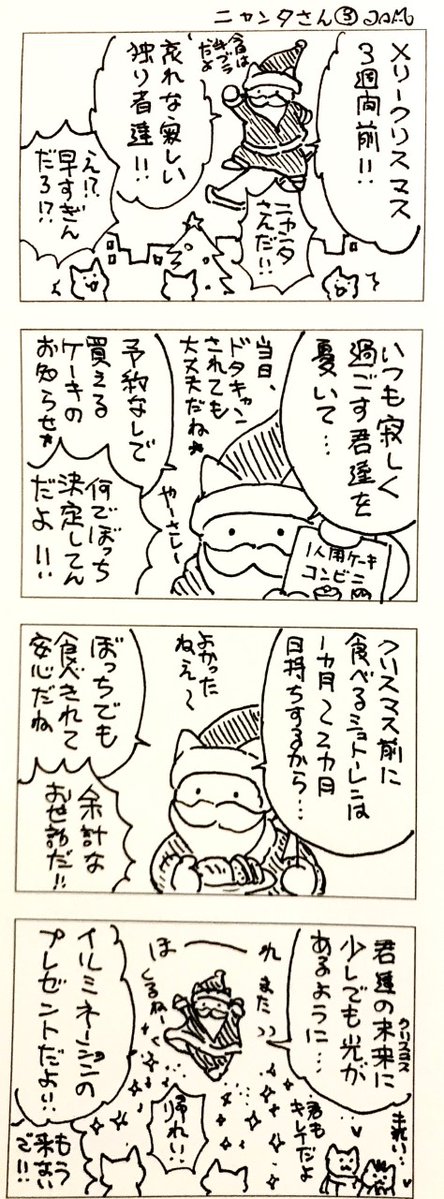 ニャンタさん③ JAM
メリークリスマス
3週間前!!
今日は
手ブラ
だよ
哀れな寂しい
独り者達!!
ニャンタ
さんだ!!
え!?
早すぎん
だろ!?
いつも寂しく
過ごす君達を
憂いて…
当日、
ドタキャン
されても
大丈夫だね
予約なしで
買える
ケーキの
お知らせ
やーさしー
1人用ケーキ
コンビニ
何でぼっち
決定してん
だよ!!
クリスマス前に
食べるシュトーレンは
1カ月〜2カ月
日持ちするから…
よかった
ねえ〜
ぼっちでも
食べきれて
安心だね
余計な
お世話だ!!
君達の未来に
クリスマス
少しでも光が
あるように…
ほーれ
また
くるねー
イルミネーションの
プレゼントだよ!!
キレイ…
君も
キレイだよ
帰れい!
もう
来ない
で!!